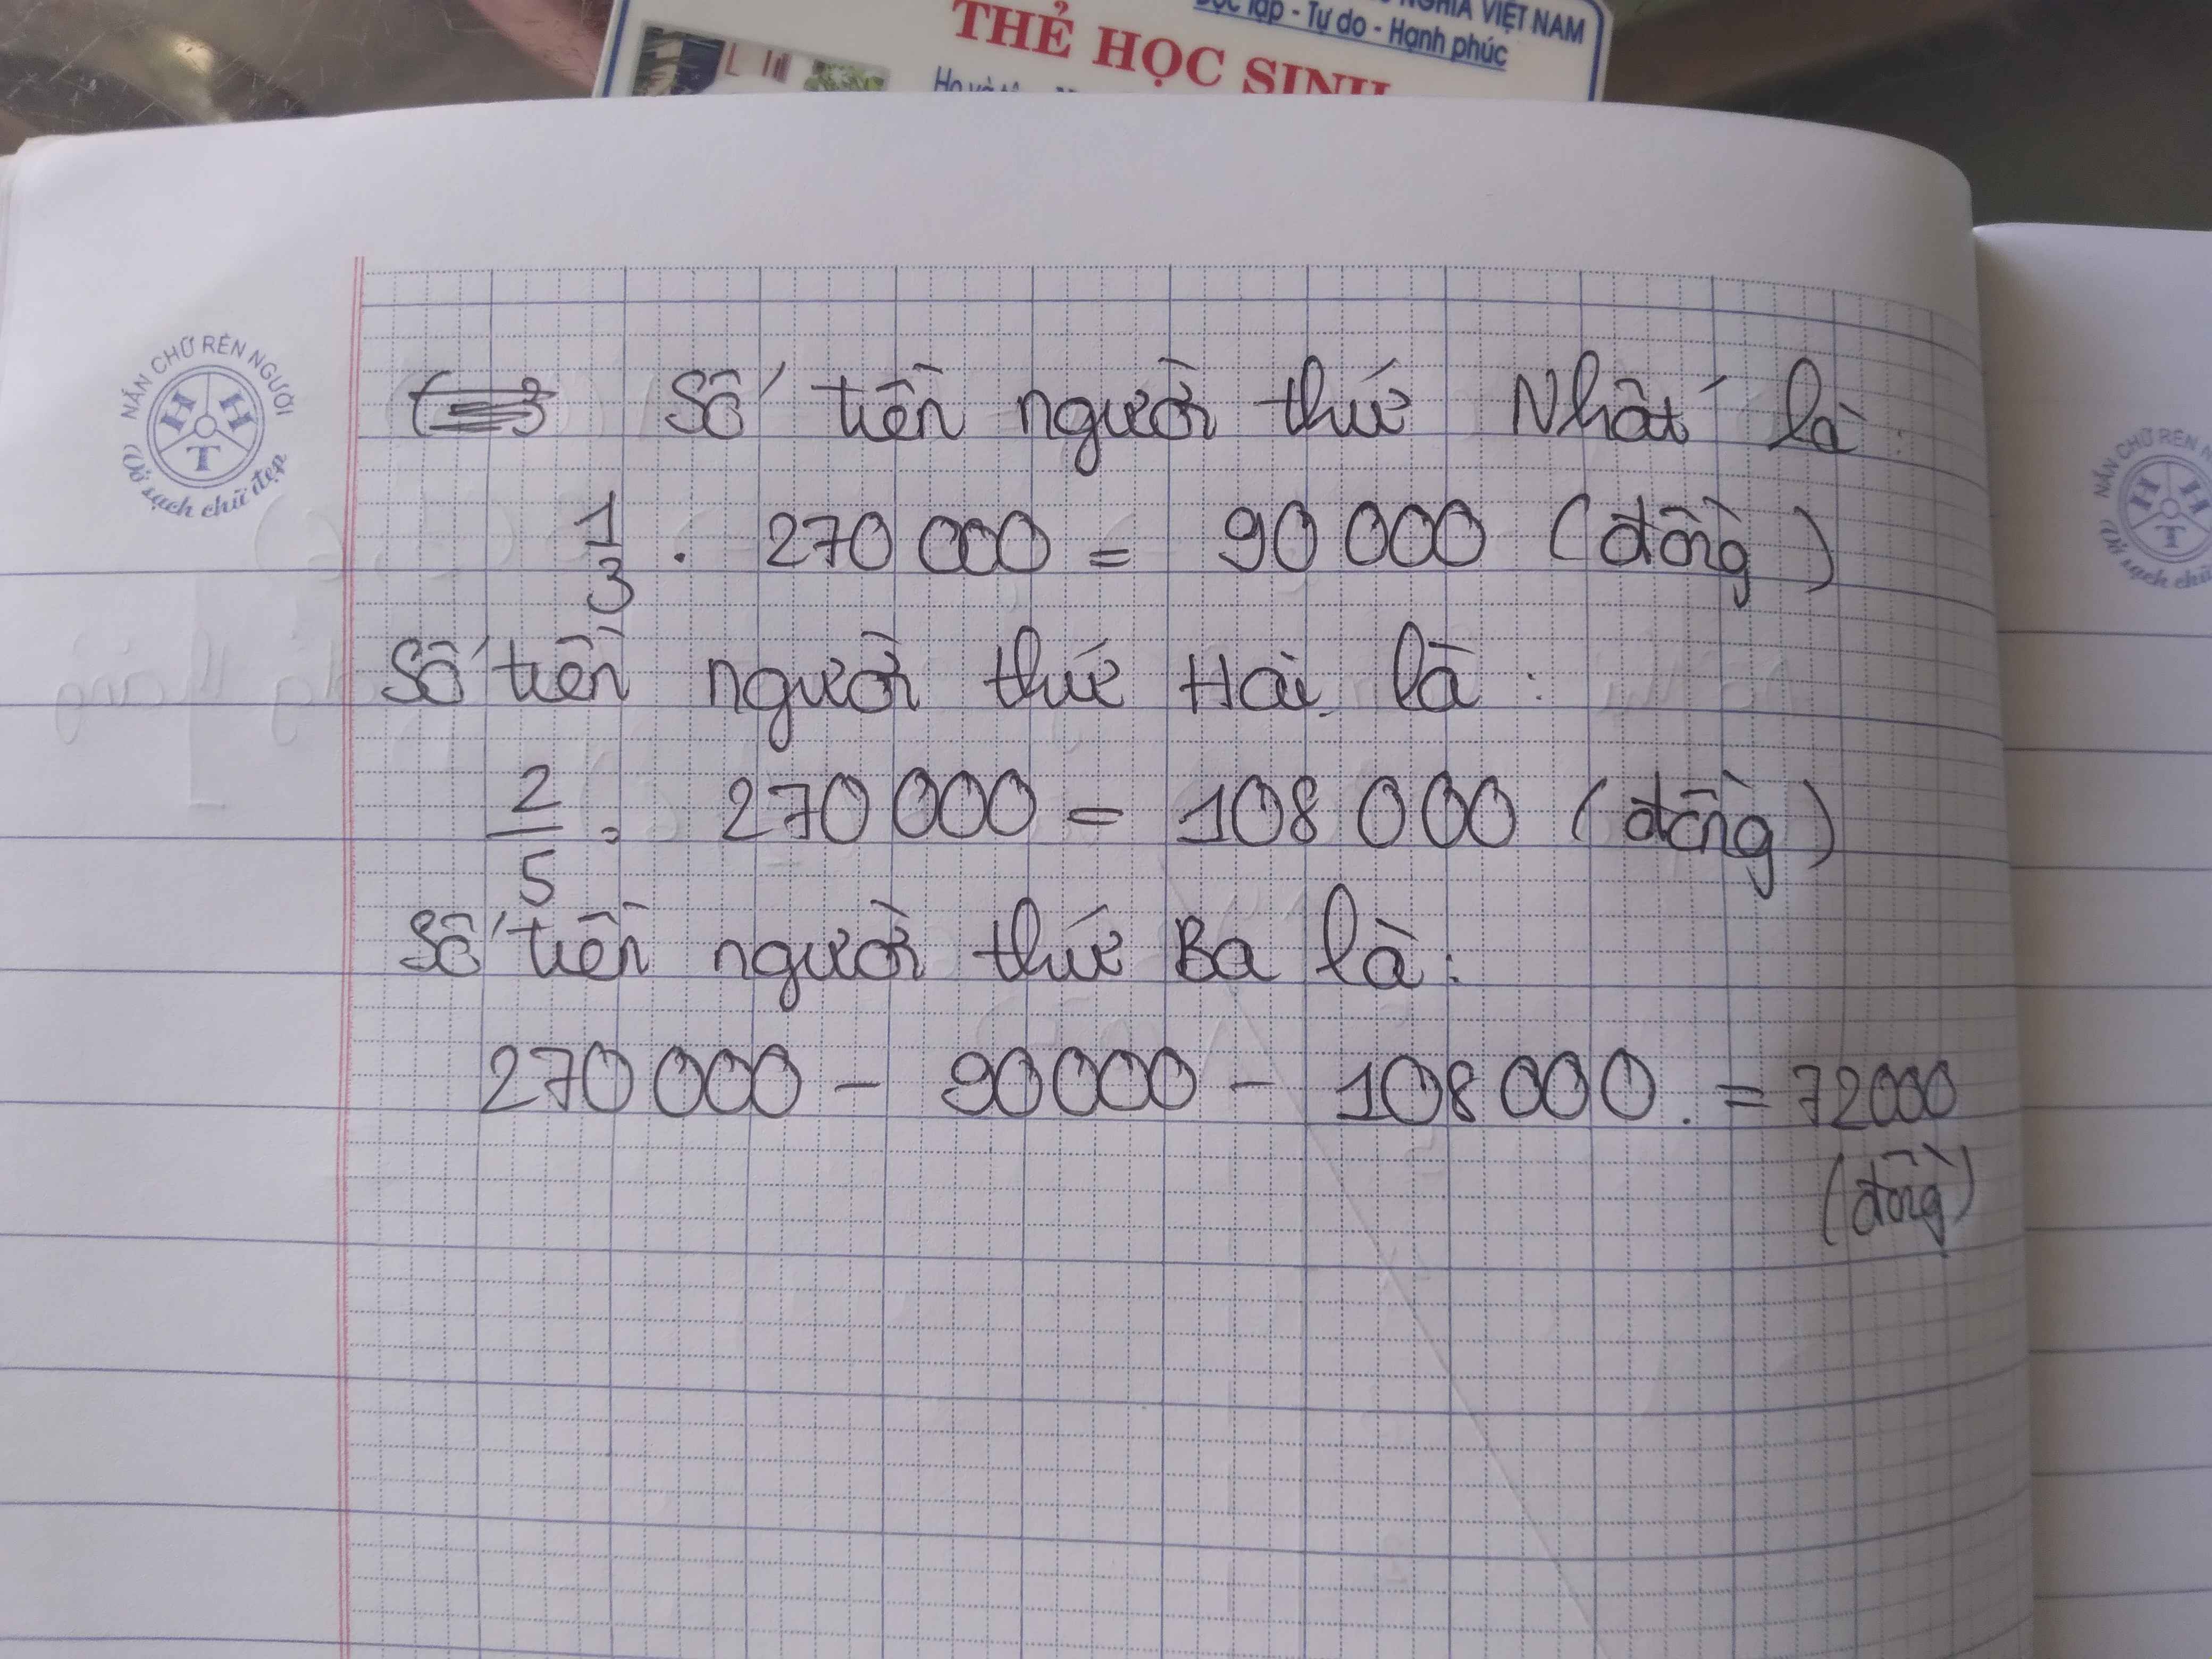 NGHĨA VIỆT NAM
Độc lập - Tự do - Hạnh phúc
THẺ HỌC SINH
Họ và tên
NẮN CHỮ RÈN NGƯỜI
H H T
Vở sạch chữ đẹp
Số tiền người thứ Nhất là:
1/3 . 270 000 = 90 000 (đồng)
Số tiền người thứ Hai là:
2/5 . 270 000 = 108 000 (đồng)
Số tiền người thứ Ba là:
270 000 - 90000 - 108 000 . = 72000
(đồng)
NẮN CHỮ RÈN
H H T
sạch chữ